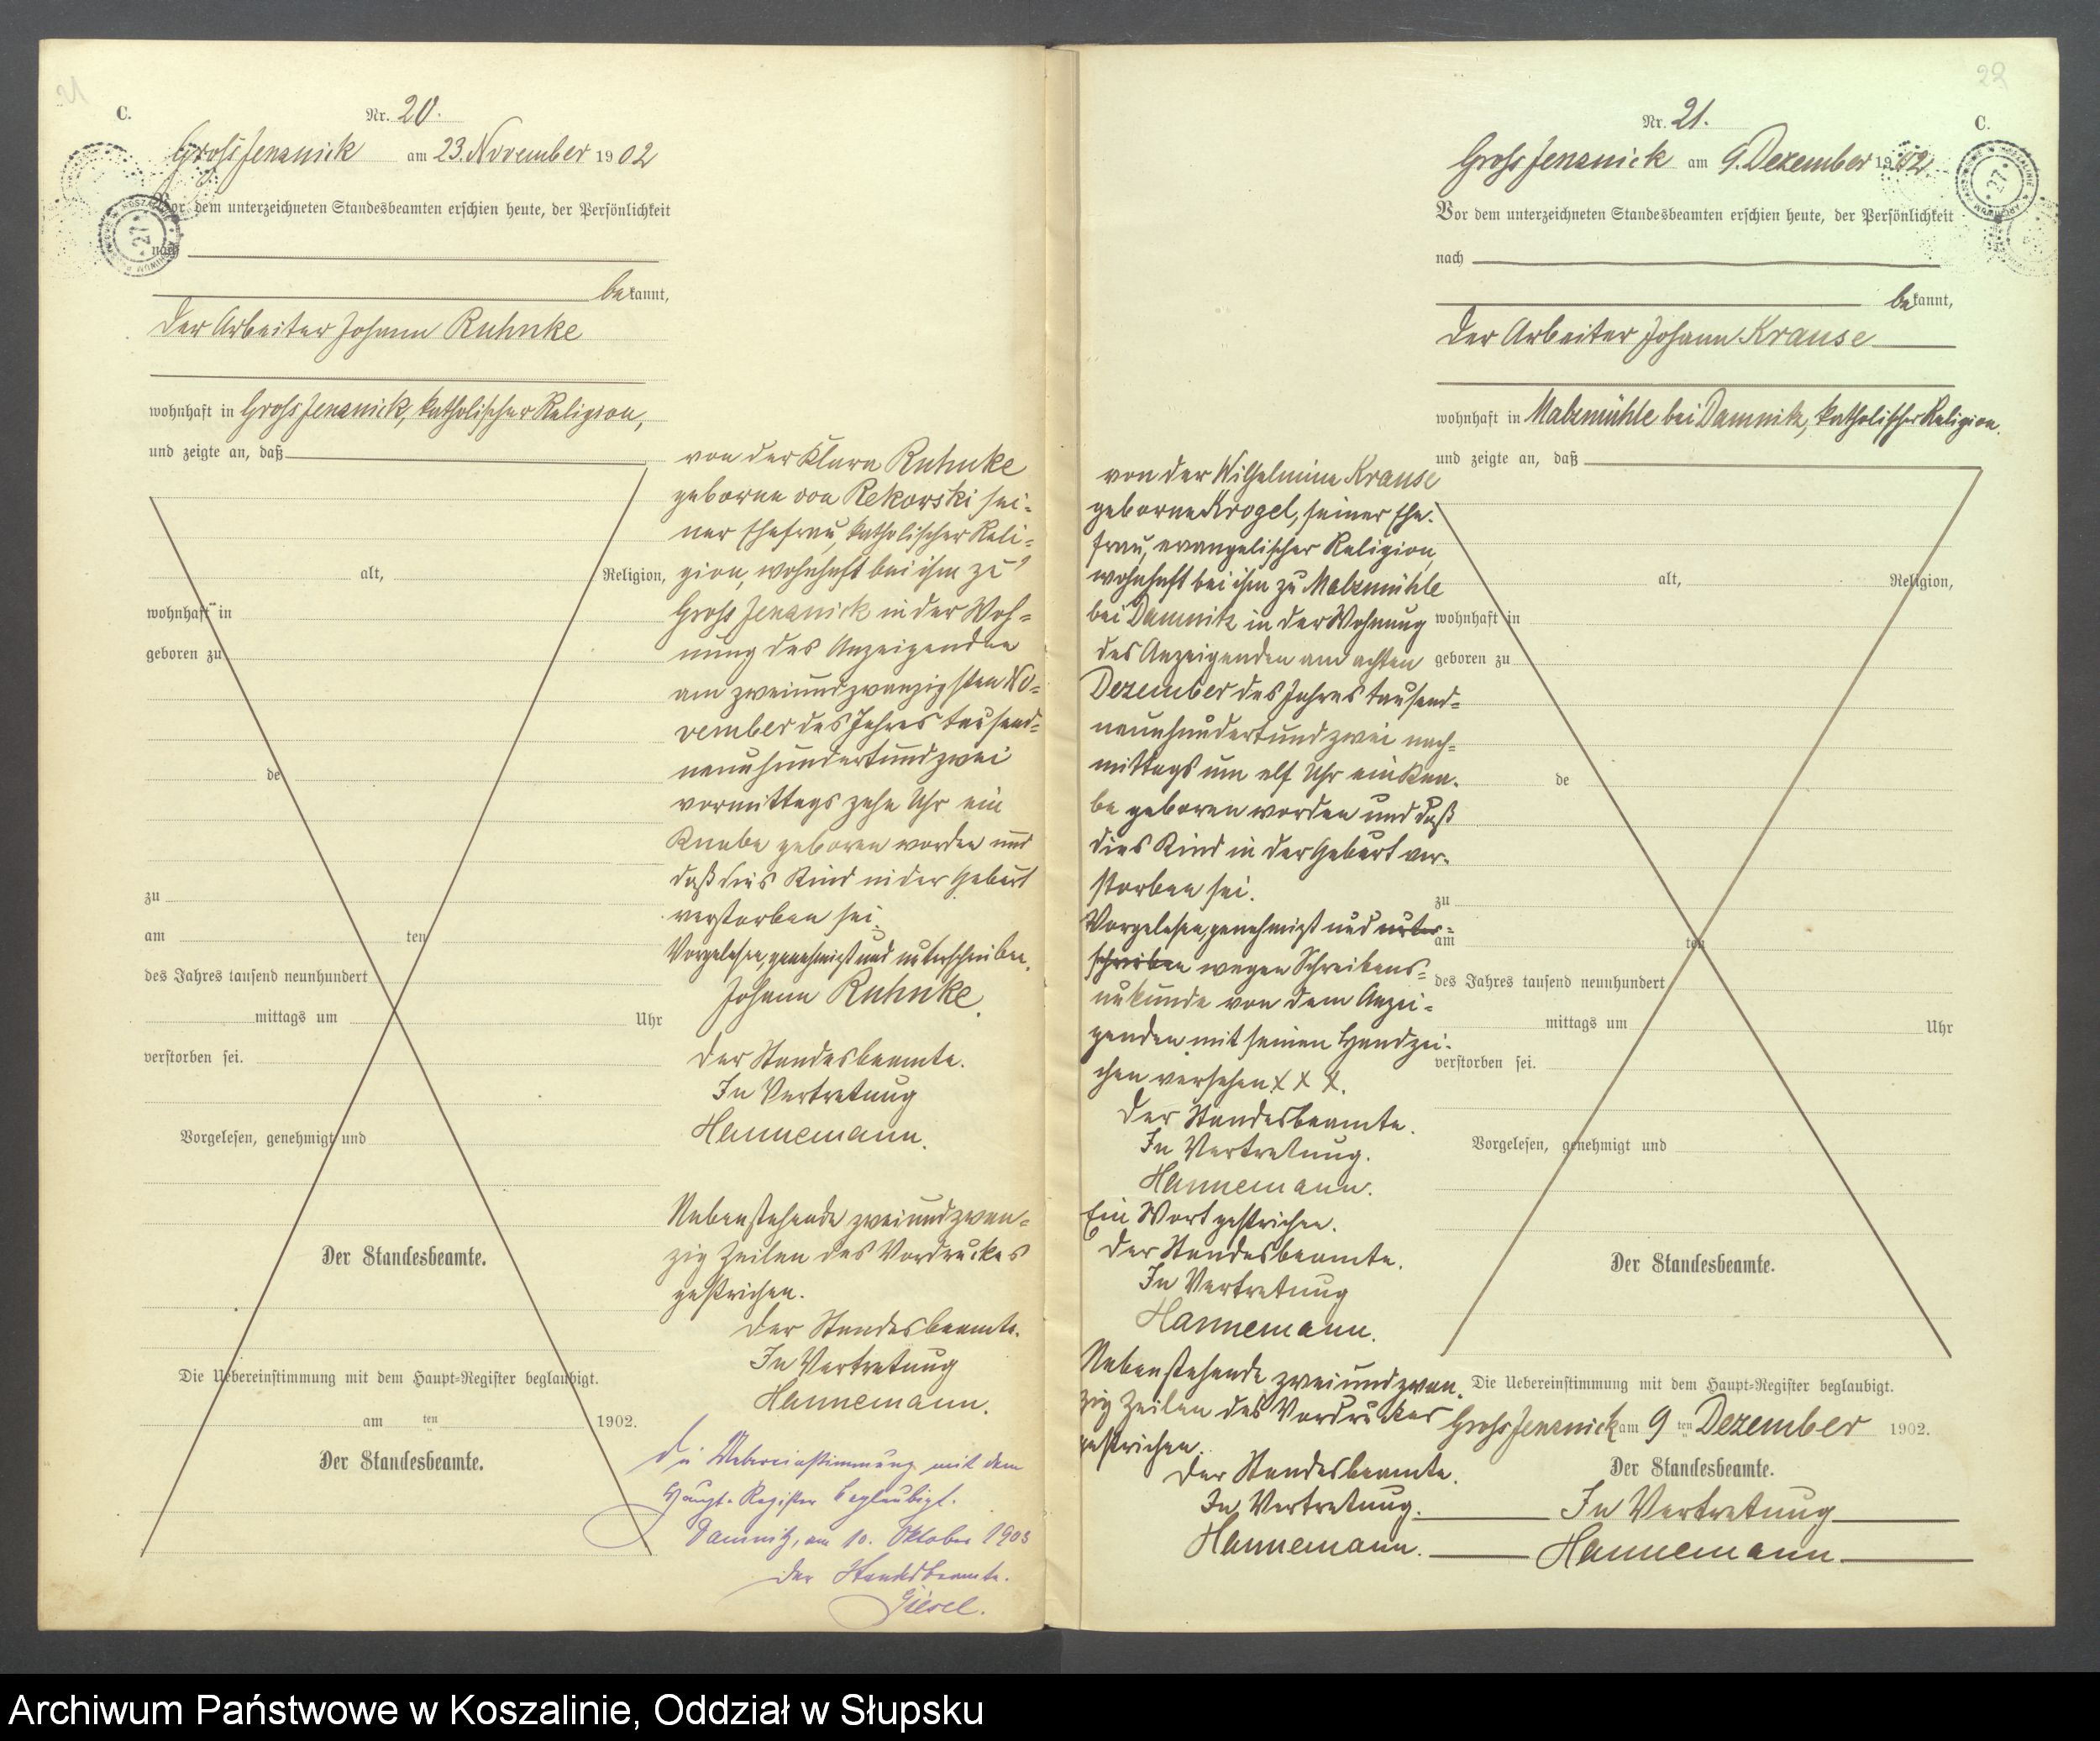 21
C.
Nr. 20.
Gross Jenznick am 23. November 1902
Vor dem unterzeichneten Standesbeamten erschien heute, der Persönlichkeit
nach
bekannt,
der Arbeiter Johann Ruhnke
wohnhaft in Gross Jenznick, katholischer Religion,
und zeigte an, daß
von der Klara Ruhnke
geborne von Rekowski sei-
ner Ehefrau, katholischer Reli-
gion, wohnhaft bei ihm zu
Gross Jenznick in der Woh-
nung des Anzeigenden
am zweiundzwanzigsten No-
vember des Jahres tausend-
neunhundertundzwei
vormittags zehn Uhr ein
Knabe geboren worden und
daß dies Kind in der Geburt
verstorben sei.
Vorgelesen, genehmigt und unterschrieben.
Johann Ruhnke.
Der Standesbeamte.
In Vertretung
Hannemann.
Nebenstehende zweiundzwan-
zig Zeilen des Vordruckes
gestrichen.
Der Standesbeamte.
In Vertretung
Hannemann.
Die Uebereinstimmung mit dem
Haupt-Register beglaubigt.
Damnitz, am 10. Oktober 1903
Der Standesbeamte.
Giesel.
alt, Religion,
wohnhaft in
geboren zu
de
zu
am ten
des Jahres tausend neunhundert
mittags um Uhr
verstorben sei.
Vorgelesen, genehmigt und
Der Standesbeamte.
Die Uebereinstimmung mit dem Haupt-Register beglaubigt.
am ten 1902.
Der Standesbeamte.
22
C.
Nr. 21.
Gross Jenznick am 9. Dezember 1902
Vor dem unterzeichneten Standesbeamten erschien heute, der Persönlichkeit
nach
bekannt,
der Arbeiter Johann Krause
wohnhaft in Malzmühle bei Damnitz, katholischer Religion.
und zeigte an, daß
von der Wilhelmine Krause
geborne Krogel, seiner Ehe-
frau, evangelischer Religion,
wohnhaft bei ihm zu Malzmühle
bei Damnitz in der Wohnung
des Anzeigenden am achten
Dezember des Jahres tausend-
neunhundertundzwei nach-
mittags um elf Uhr ein Kna-
be geboren worden und daß
dies Kind in der Geburt ver-
storben sei.
Vorgelesen, genehmigt und unter-
schrieben wegen Schreibens-
unkunde von dem Anzei-
genden mit seinen Handzei-
chen versehen X X X.
Der Standesbeamte.
In Vertretung.
Hannemann.
Ein Wort gestrichen.
Der Standesbeamte.
In Vertretung
Hannemann.
Nebenstehende zweiundzwan-
zig Zeilen des Vordruckes
gestrichen.
Der Standesbeamte.
In Vertretung.
Hannemann.
alt, Religion,
wohnhaft in
geboren zu
de
zu
am ten
des Jahres tausend neunhundert
mittags um Uhr
verstorben sei.
Vorgelesen, genehmigt und
Der Standesbeamte.
Die Uebereinstimmung mit dem Haupt-Register beglaubigt.
Gross Jenznick am 9 ten Dezember 1902.
Der Standesbeamte.
In Vertretung
Hannemann
Archiwum Państwowe w Koszalinie, Oddział w Słupsku